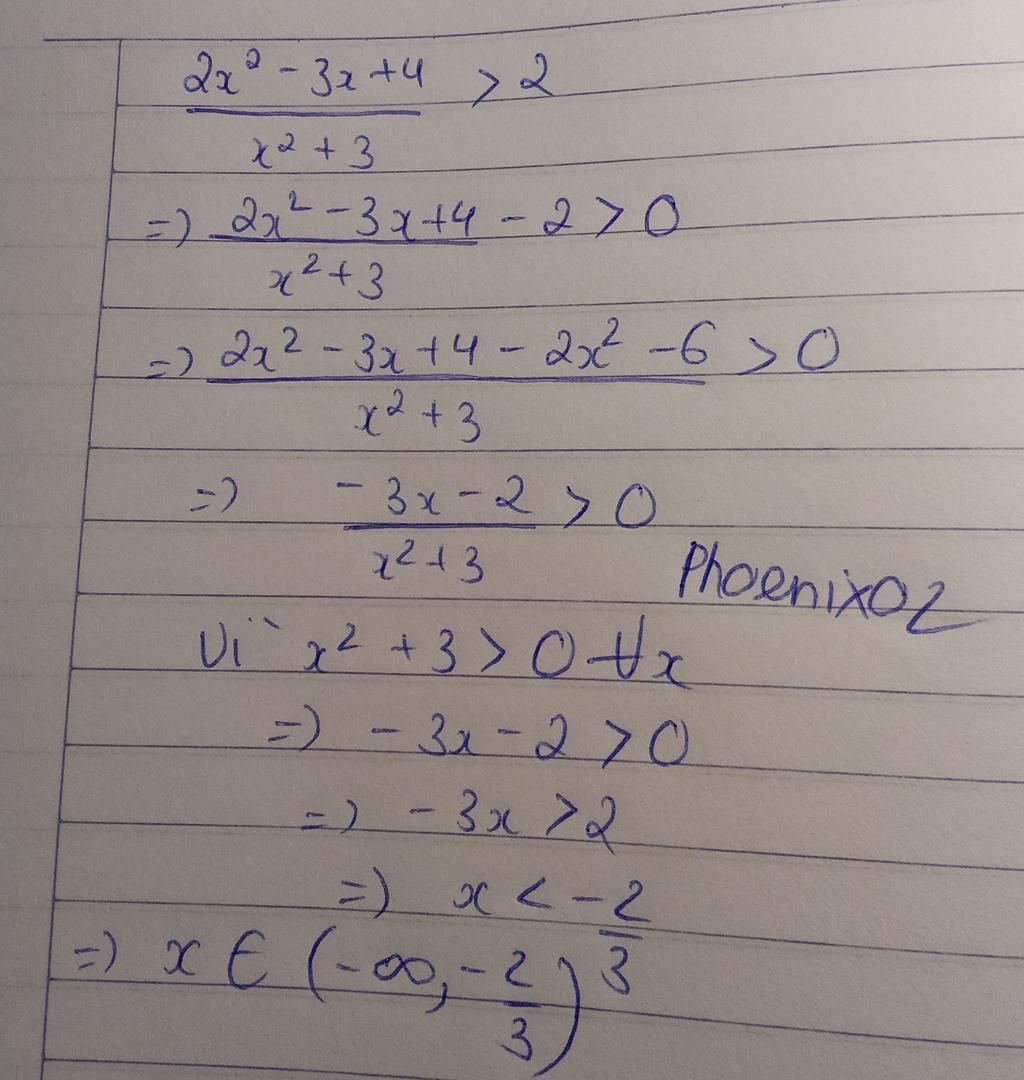 2x² - 3x + 4 > 2
x² + 3
=> 2x² - 3x + 4 - 2 > 0
x² + 3
=> 2x² - 3x + 4 - 2x² - 6 > 0
x² + 3
=> - 3x - 2 > 0
x² + 3
Phoenix02
Vì x² + 3 > 0 ∀x
=> - 3x - 2 > 0
=> - 3x > 2
=> x < - 2
3
=> x ∈ (-∞, - 2
3)